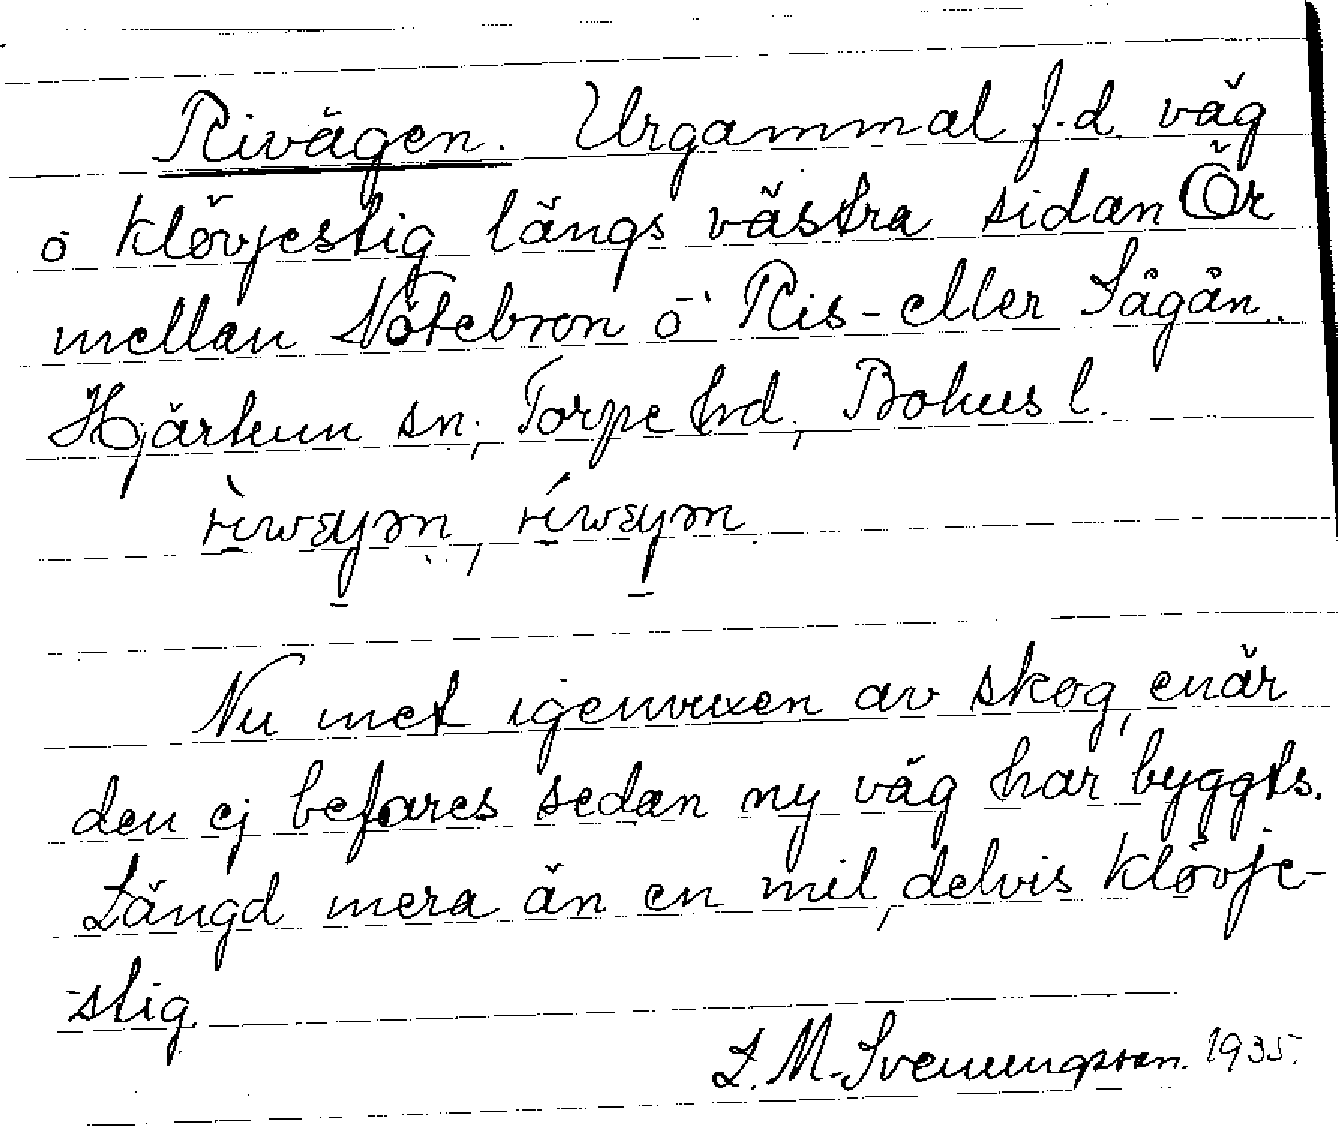 Rivägen. Urgammal f.d. väg
o klövjestig längs västra sidan Ör
mellan Nötebron o Ris- eller Sågån.
Hjärtum sn; Torpe hrd, Bohus l.
Nu mest igenvuxen av skog, enär
den ej befares sedan ny väg har byggts.
Längd mera än en mil, delvis klövje-
stig.
L. M. Svenungsson. 1935.